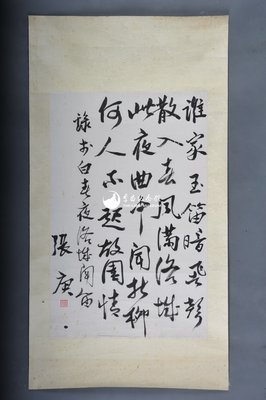 誰家玉笛暗飛聲
散入春風滿洛城
此夜曲中聞折柳
何人不起故園情
錄李白春夜洛城聞笛
張庚